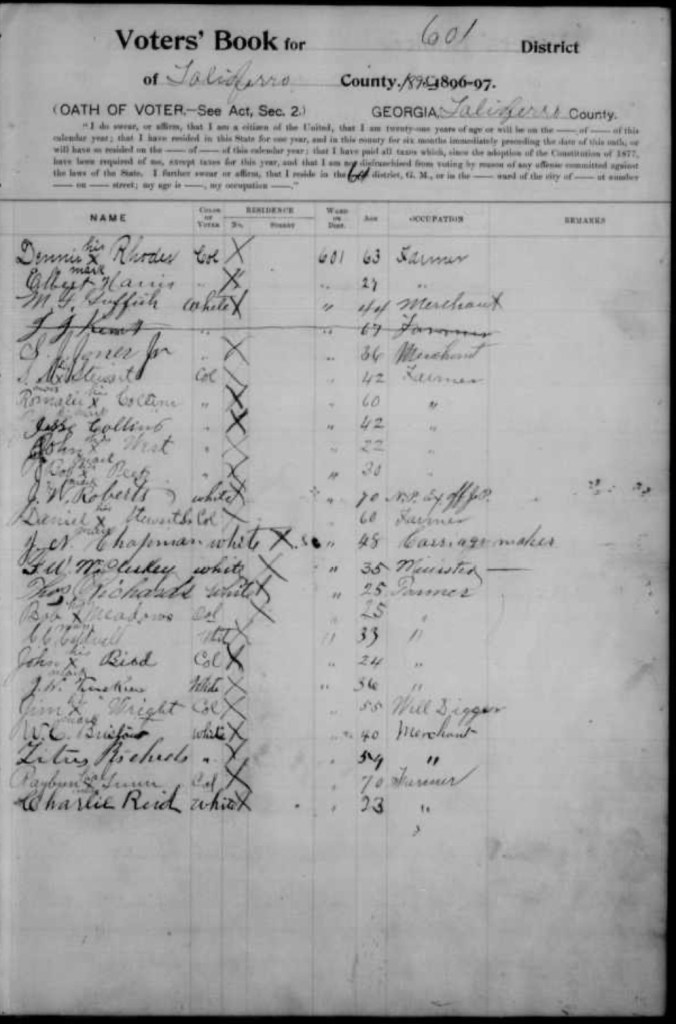 Voters' Book for 601 District
of Taliaferro County, 1896-97.
(OATH OF VOTER,—See Act, Sec. 2.) GEORGIA, Taliaferro County.
"I do swear, or affirm, that I am a citizen of the United, that I am twenty-one years of age or will be on the —— of —— of this
calendar year; that I have resided in this State for one year, and in this county for six months immediately preceding the date of this oath; or
will have so resided on the —— of —— of this calendar year; that I have paid all taxes which, since the adoption of the Constitution of 1877,
have been required of me, except taxes for this year, and that I am not disfranchised from voting by reason of any offense committed against
the laws of the State. I further swear or affirm, that I reside in the district, G. M., or in the —— ward of the city of —— at number
—— on —— street; my age is ——, my occupation ——."
NAME COLOR OF VOTER RESIDENCE No. STREET WARD OR DIST. AGE OCCUPATION REMARKS
Dennis his x mark Rhodes Col X 601 63 Farmer
Albert Harris " X " 29 "
M. F. Griffith white X " 44 Merchant
" " 67 Farmer
S. J. Jones Jr " X " 36 Merchant
Stewart Col X " 42 Farmer
his x mark Collins " X " 60 "
Jesse Collins " X " 42 "
John his x mark West " X " 22 "
Bob x " X " 30 "
J. W. Roberts white X " 70 N.P. Ex off J.P.
Daniel his x mark Stewart Sr Col X " 60 Farmer
Chapman white X " 48 Carriage maker
white X " 35 Minister
Thos Richards white X " 25 Farmer
Bob x Meadows Col X " 25 "
X " 33 "
John his x mark Bird Col X " 24 "
J. W. white X " 36 "
Jim his x mark Wright Col X " 55 Well Digger
W. C. Bristow white X " 40 Merchant
Titus Richards " X " 59 "
Gunn Col X " 70 Farmer
Charlie Reid white X " 23 "